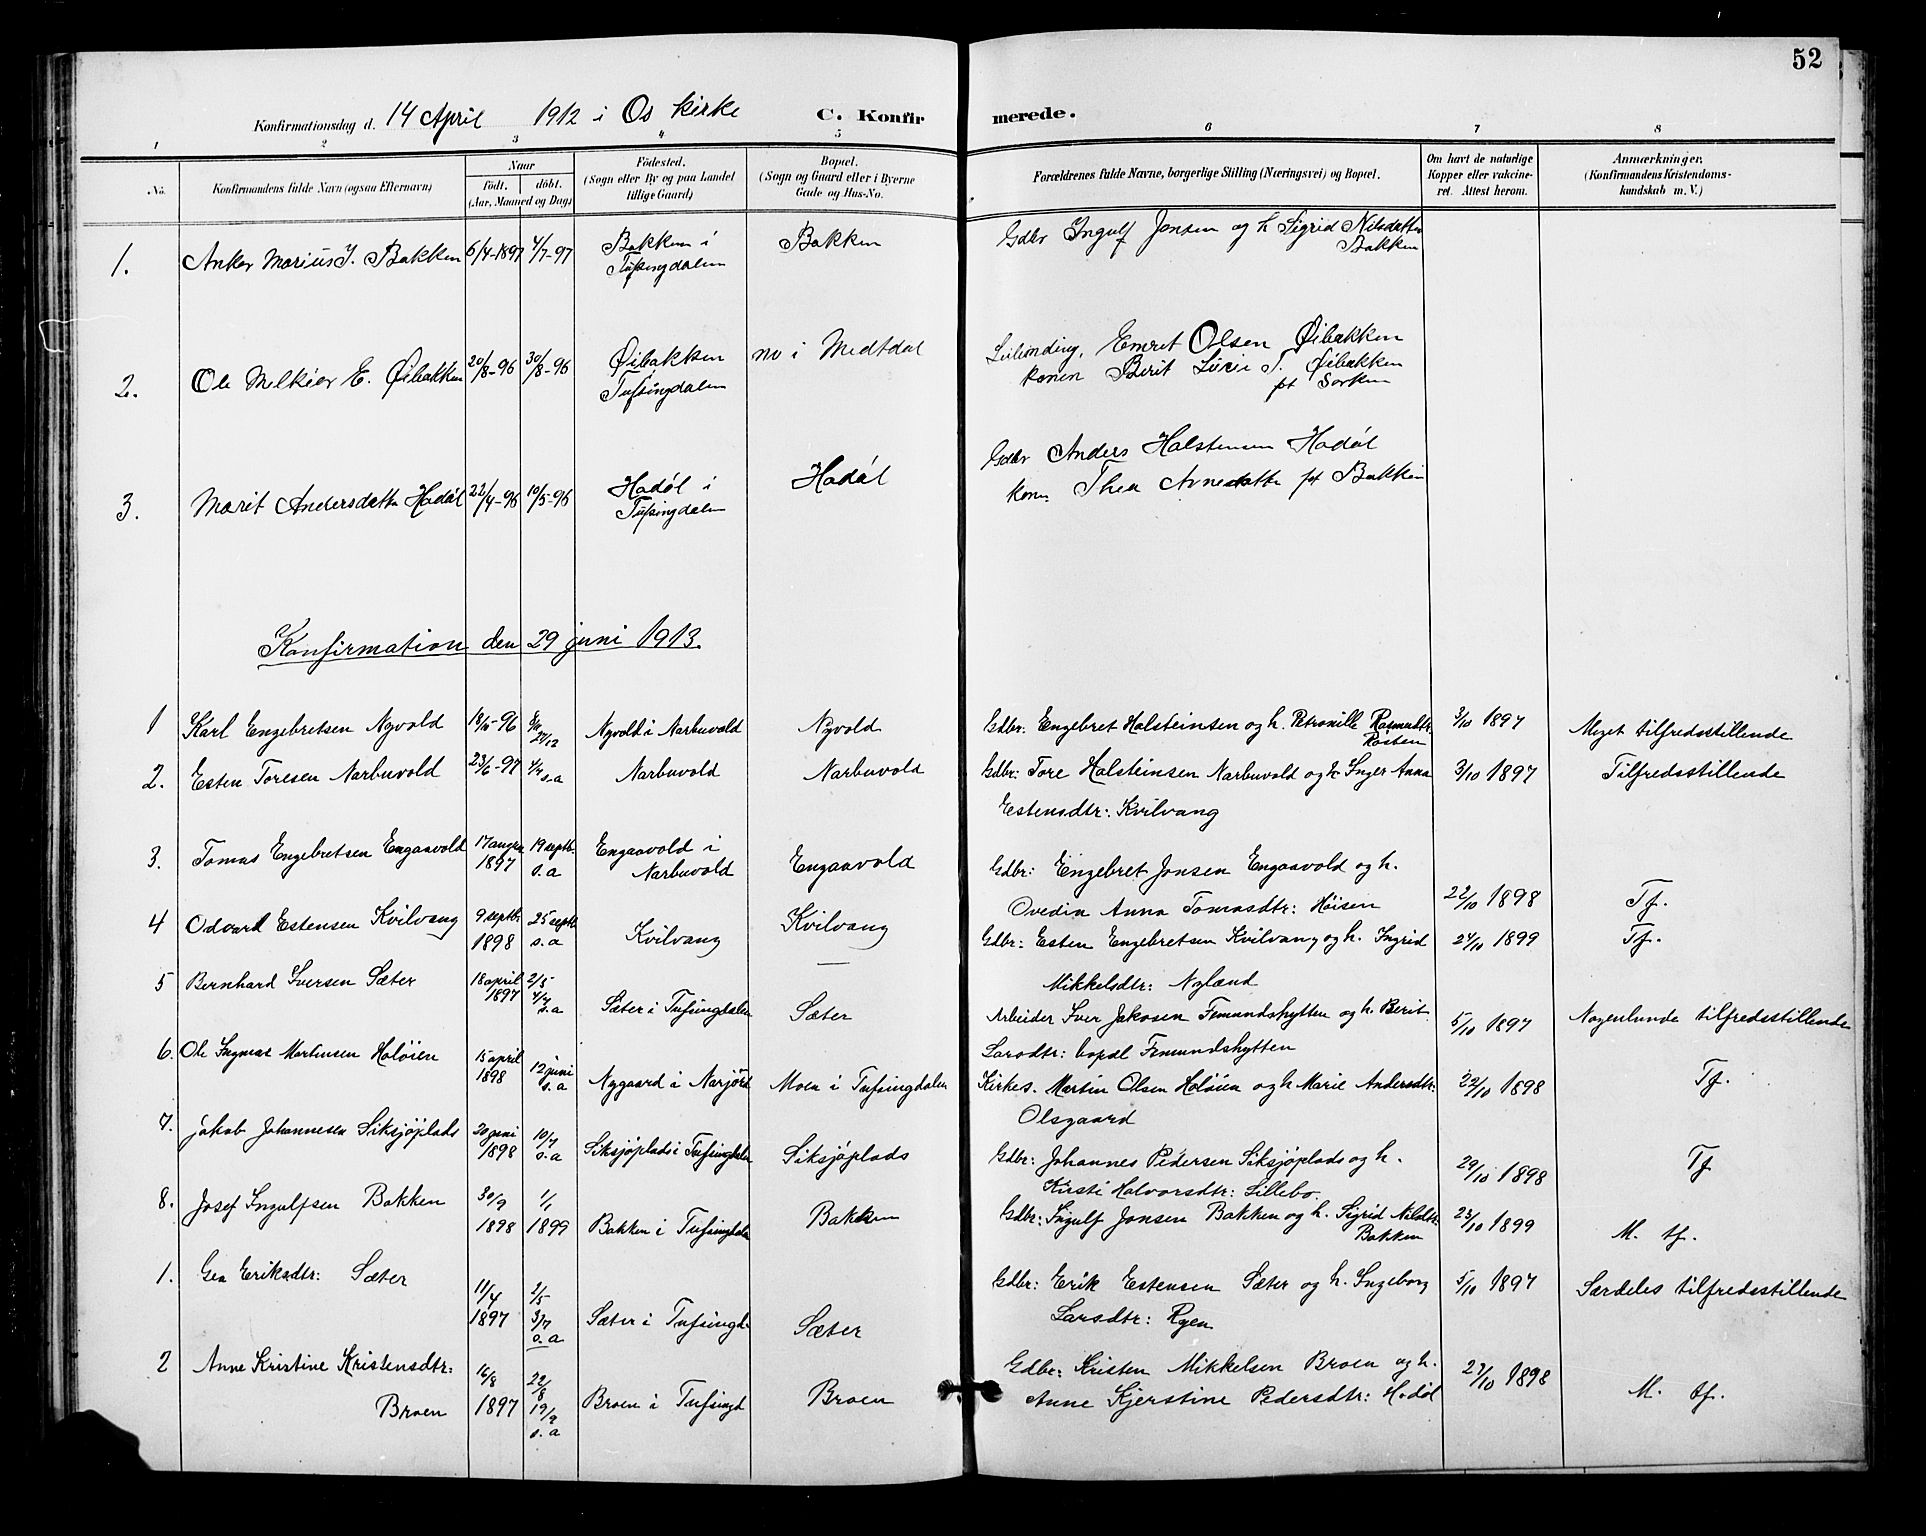 52
Konfirmationsdag d. 14 April 1912 i Os kirke C. Konfirmerede.
1 2 3 4 5 6 7 8
No.
Konfirmandens fulde Navn (ogsaa Efternavn)
Naar
født. døbt.
(Aar, Maaned og Dag)
Fødested.
(Sogn eller By og paa Landet
tillige Gaard)
Bopæl.
(Sogn og Gaard eller i Byerne
Gade og Hus-No.
Forældrenes fulde Navne, borgerlige Stilling (Næringsvei) og Bopæl.
Om havt de naturlige
Kopper eller vakcine-
ret. Attest herom.
Anmærkninger.
(Konfirmandens Kristendoms-
kundskab m. V.)
1. Anker Marius I. Bakken 6/4-1897 4/7-97 Bakken i Bakken Gdbr Ingulf Jonsen og h Sigrid Nilsdatter
Tufsingdalen Bakken
2. Ole Melkior E. Øibakken 20/8-96 30/8-96 Øibakken nu i Medtdal Leilending, Emret Olsen Øibakken
Tufsingdalen konen Berit Lucie T. Øibakken
pt Sorken
3. Marit Andersdatter Hodøl 22/4-96 10/5-96 Hodøl i Hodøl Gdbr Anders Halstensen Hodøl
Tufsingdalen kone Thea Arnedatter pt Bakken
Konfirmation den 29 juni 1913.
1 Karl Engebretsen Nyvold 18/11-96 27/12 Nyvold i Narbuvold Nyvold Gdbr: Engebret Halsteinsen og h. Petronille Rasmusdtr: 3/10 1897 Meget tilfredsstillende
Rosten
2. Esten Toresen Narbuvold 23/6-97 4/7 s.a Narbuvold Narbuvold Gdbr: Tore Halsteinsen Narbuvold og h Inger Anna 3/10 1897 Tilfredsstillende
Estensdtr: Kvilvang
3. Tomas Engebretsen Engaavold 17 august 19 septb. Engaavold i Engaavold Gdbr: Engebret Jonsen Engaavold og h.
1897 s.a Narbuvold Ovedia Anna Tomasdtr: Høisen 22/10 1898 Tf.
4 Odvard Estensen Kvilvang 9 septb. 25 septb. Kvilvang Kvilvang Gdbr: Esten Engebretsen Kvilvang og h. Ingrid 24/10 1899 Tf.
1898 s.a Mikkelsdtr: Nyland
5 Bernhard Iversen Sæter 18 april 2/5 4/7 Sæter i Tufsingdalen Sæter Arbeider Iver Jakosen Femundshytten og h Berit 5/10 1897 Nogenlunde tilfredsstillende
1897 s.a Larsdtr: bopdl Femundshytten
6. Ole Ingmar Martinsen Holøien 15 april 12 juni Nygaard i Narjord Moen i Tufsingdalen Kirkes. Martin Olsen Holøien og h Marie Andersdtr: 22/10 1898 Tf.
1898 s.a Olsgaard
7. Jakob Johannesen Siksjøplads 20 juni 10/7 Siksjøplads i Tufsingdalen Siksjøplads Gdbr: Johannes Pedersen Siksjøplads og h. 29/10 1898 Tf
1898 s.a Kirsti Halvorsdtr: Lillebo.
8. Josef Ingulfsen Bakken 30/9 1/1 Bakken i Tufsingdalen Bakken Gdbr: Ingulf Jonsen Bakken og h. Sigrid Nilsdtr: 23/10 1899 M. tf.
1898 1899 Bakken
1. Gea Eriksdtr: Sæter 11/4 2/5 3/7 Sæter i Tufsingd. Sæter Gdbr: Erik Estensen Sæter og h. Ingeborg 5/10 1897 Særdeles tilfredsstillende
1897 s.a Larsdtr: Ryen
2 Anne Kristine Kristensdtr: 16/8 22/8 Broen i Tufsingd Broen Gdbr: Kristen Mikkelsen Broen og h. 27/10 1898 M. tf.
Broen 1897 19/9 s.a Anne Kjerstine Pedersdtr: Hodøl